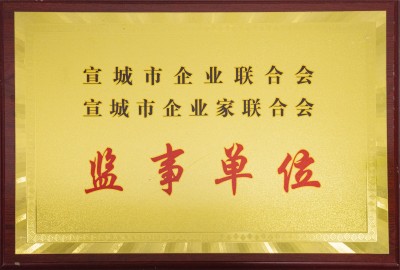 宣城市企业联合会
宣城市企业家联合会
监事单位